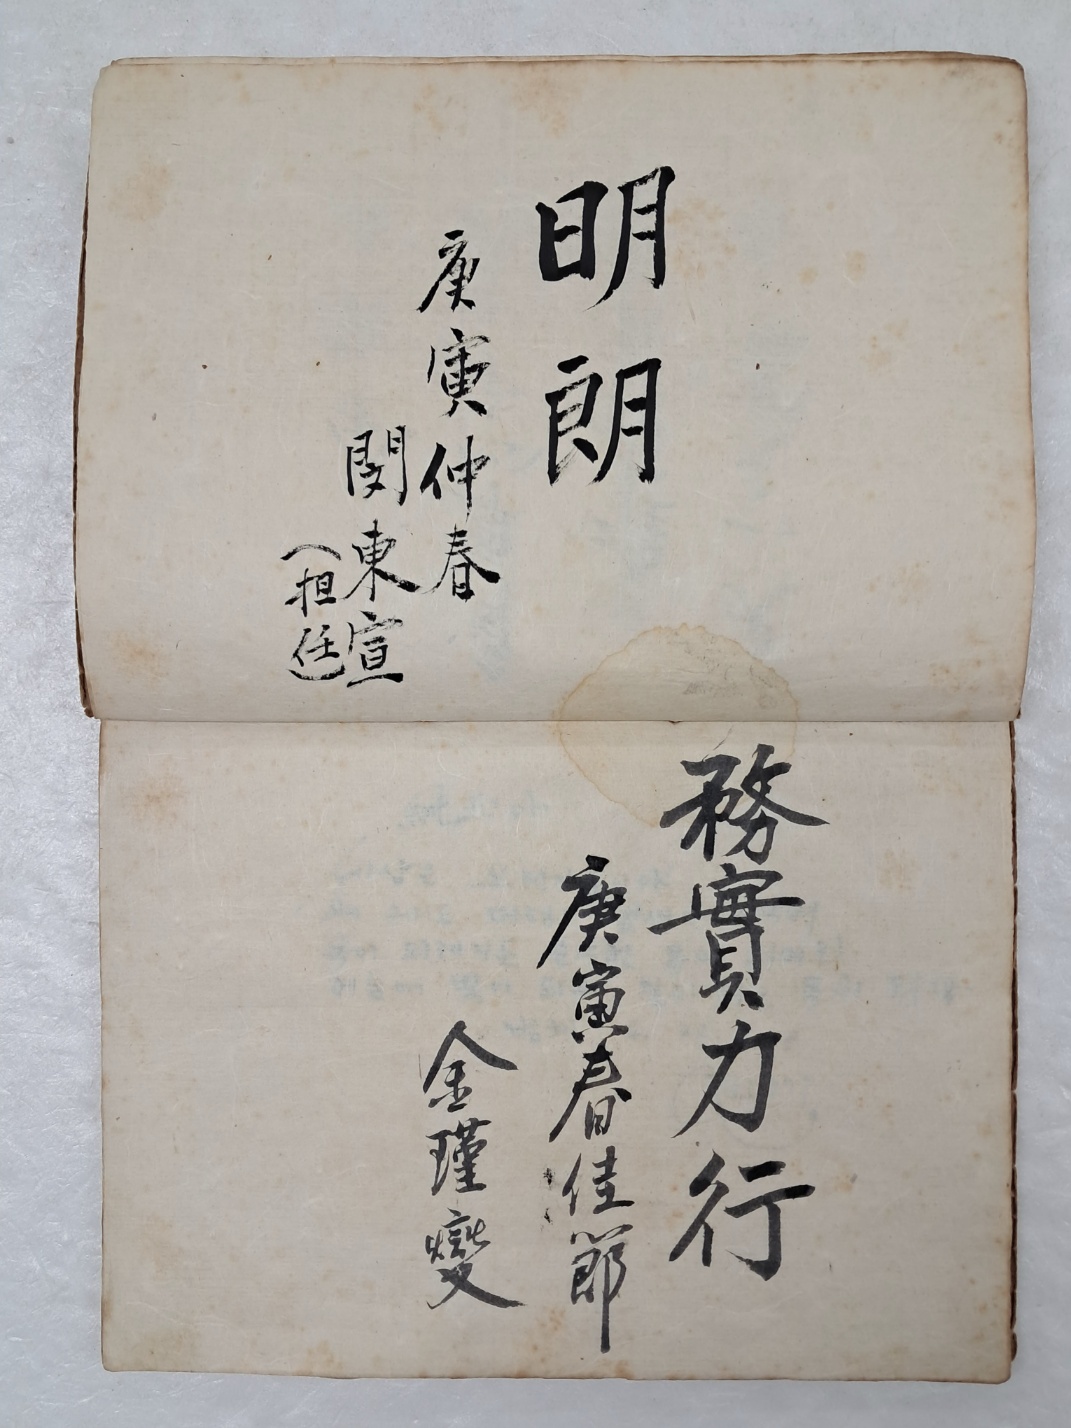 明朗
庚寅仲春
閔東宣
（担任）
務實力行
庚寅春佳節
金瑾燮